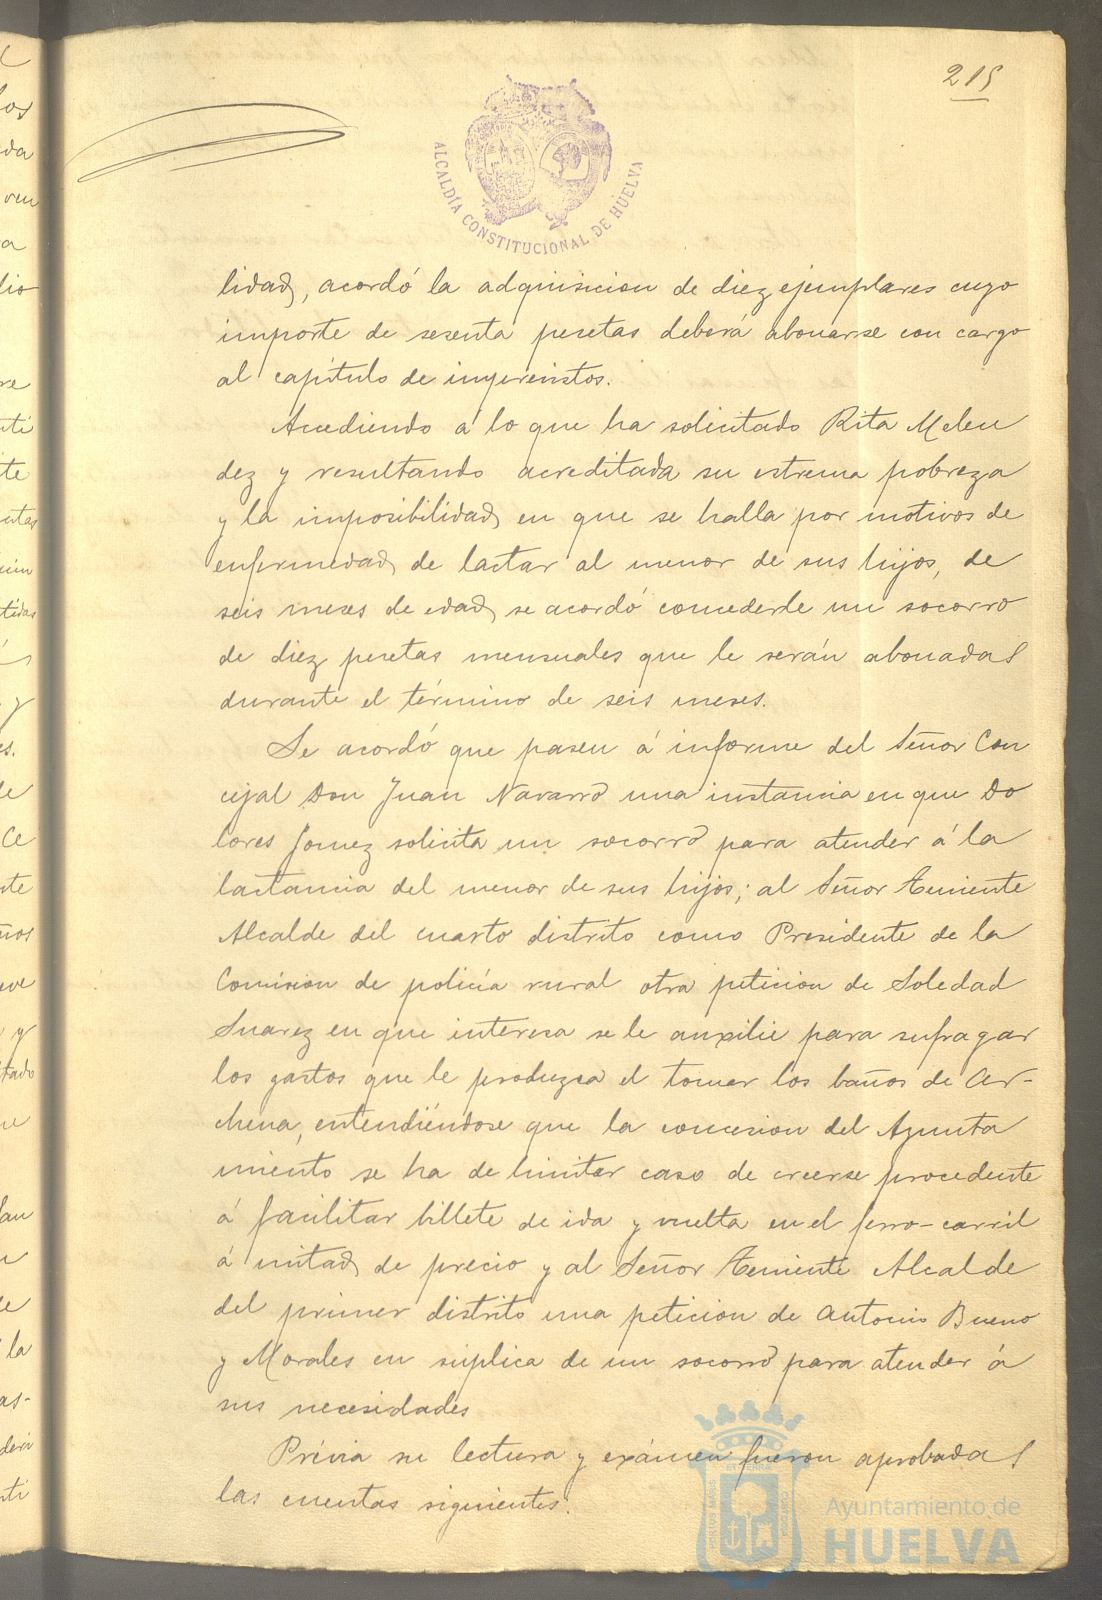 215
ALCALDÍA CONSTITUCIONAL DE HUELVA
lidad, acordó la adquisicion de diez ejemplares cuyo
importe de sesenta pesetas deberá abonarse con cargo
al capítulo de imprevistos.
Accediendo á lo que ha solicitado Rita Melen
dez y resultando acreditada su estrema pobreza
y la imposibilidad en que se halla por motivos de
enfermedad de lactar al menor de sus hijos, de
seis meses de edad, se acordó concederle un socorro
de diez pesetas mensuales que le serán abonadas
durante el término de seis meses.
Se acordó que pasen á informe del Señor Con
cejal Don Juan Navarro una instancia en que Do
lores Gomez solicita un socorro para atender á la
lactancia del menor de sus hijos; al Señor Teniente
Alcalde del cuarto distrito como Presidente de la
Comision de policía rural otra peticion de Soledad
Suarez en que interesa se le auxilie para sufragar
los gastos que le produzca el tomar los baños de Ar-
chena, entendiéndose que la concesion del Ayunta
miento se ha de limitar caso de creerse procedente
á facilitar billete de ida y vuelta en el ferro-carril
á mitad de precio y al Señor Teniente Alcalde
del primer distrito una peticion de Antonio Bueno
y Morales en súplica de un socorro para atender á
sus necesidades
Prévia su lectura y exámen fueron aprobadas
las cuentas siguientes.
Ayuntamiento de
HUELVA